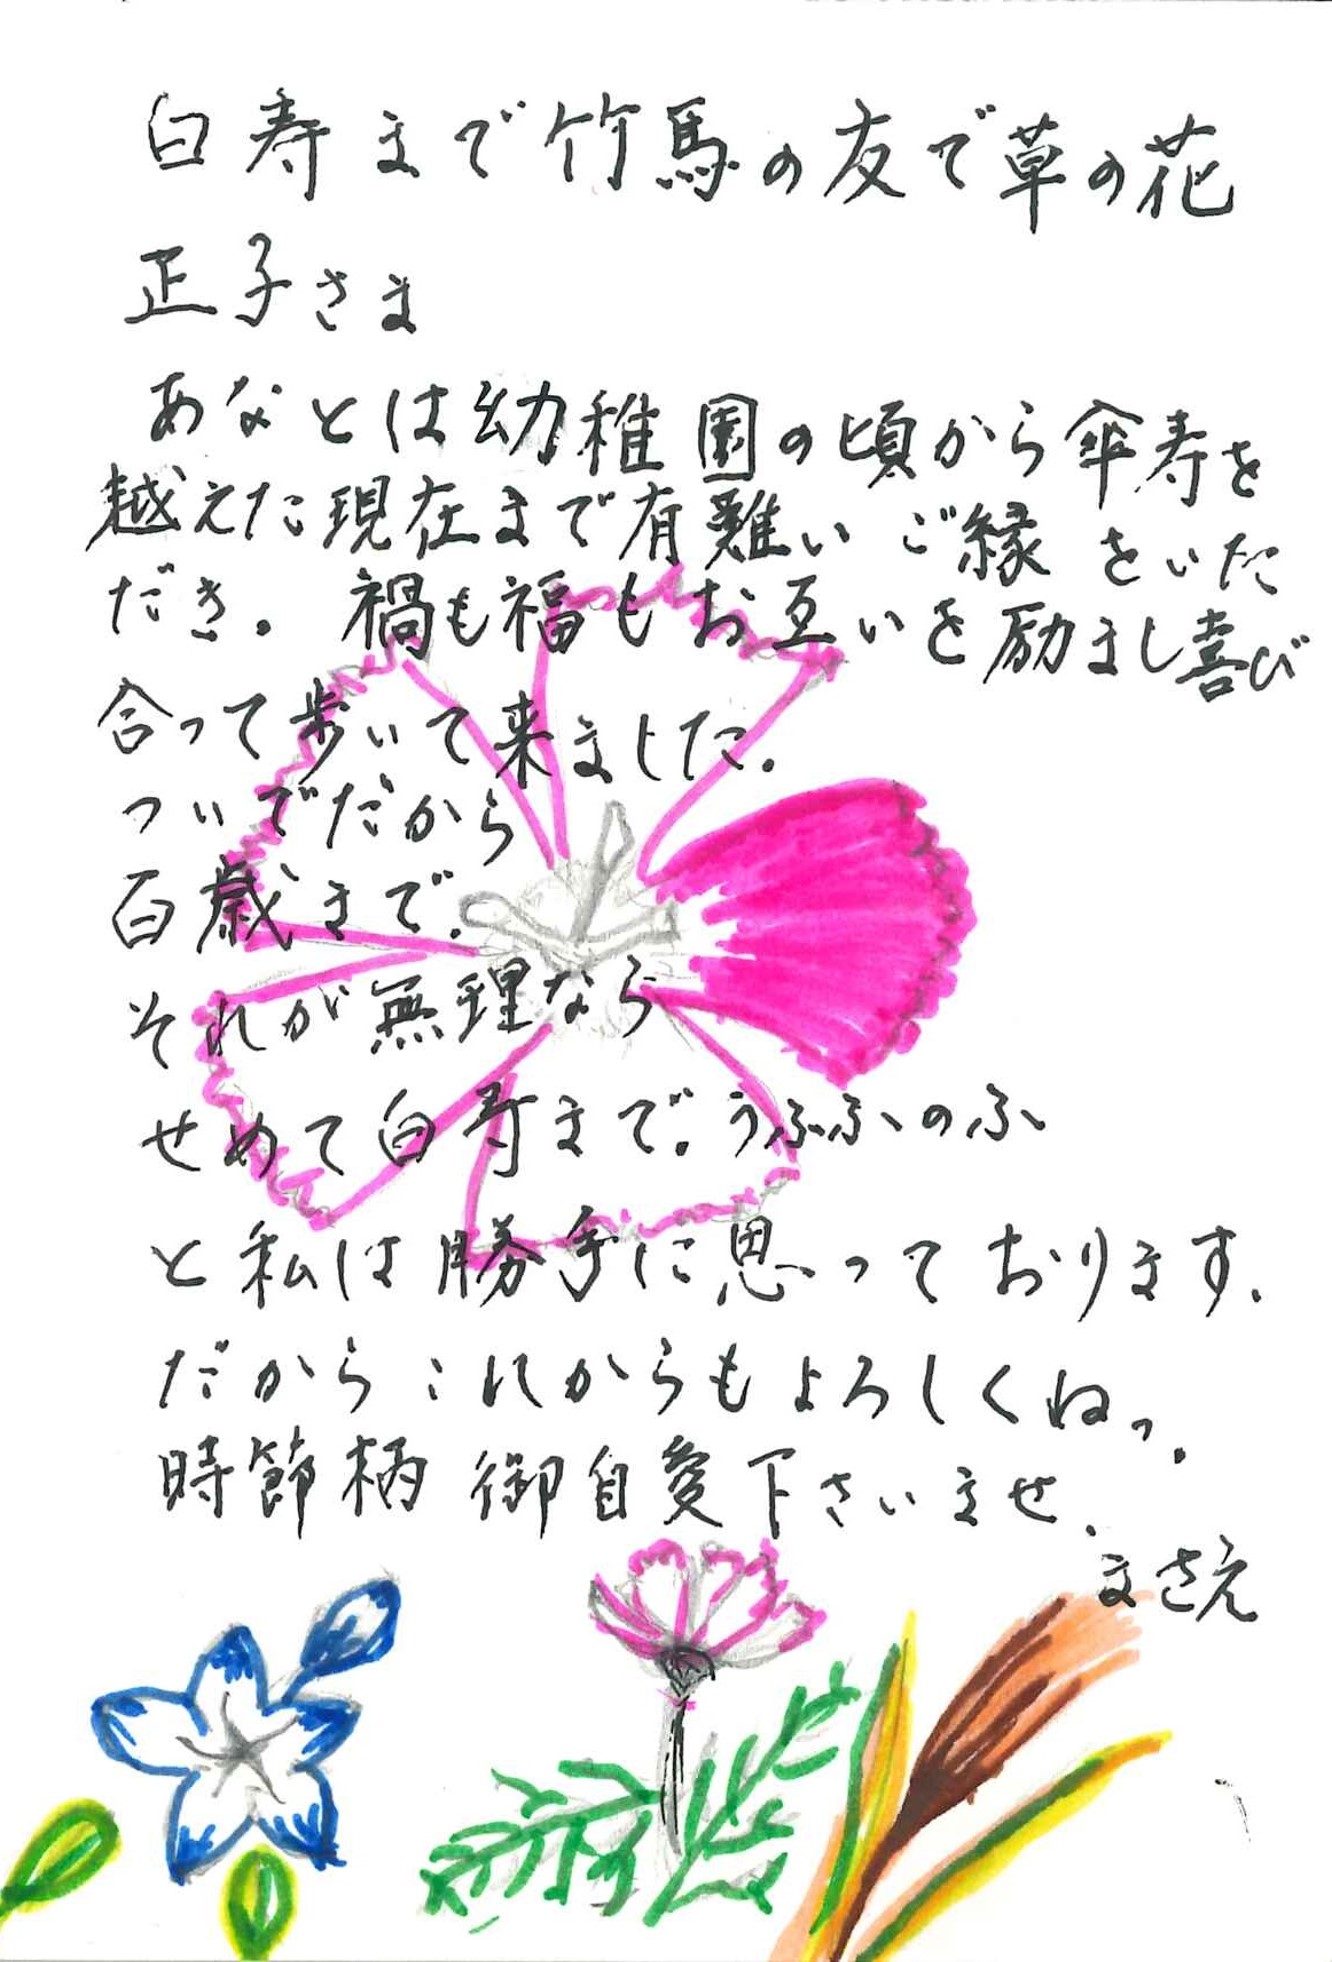 白寿まで竹馬の友で草の花
正子さま
あなとは幼稚園の頃から傘寿を
越えた現在まで有難いご縁をいた
だき。禍も福もお互いを励まし喜び
合って歩いて来ました。
ついでだから
百歳まで。
それが無理なら
せめて白寿まで。うふふのふ
と私は勝手に思っております。
だからこれからもよろしくねっ。
時節柄 御自愛下さいませ。
まさえ